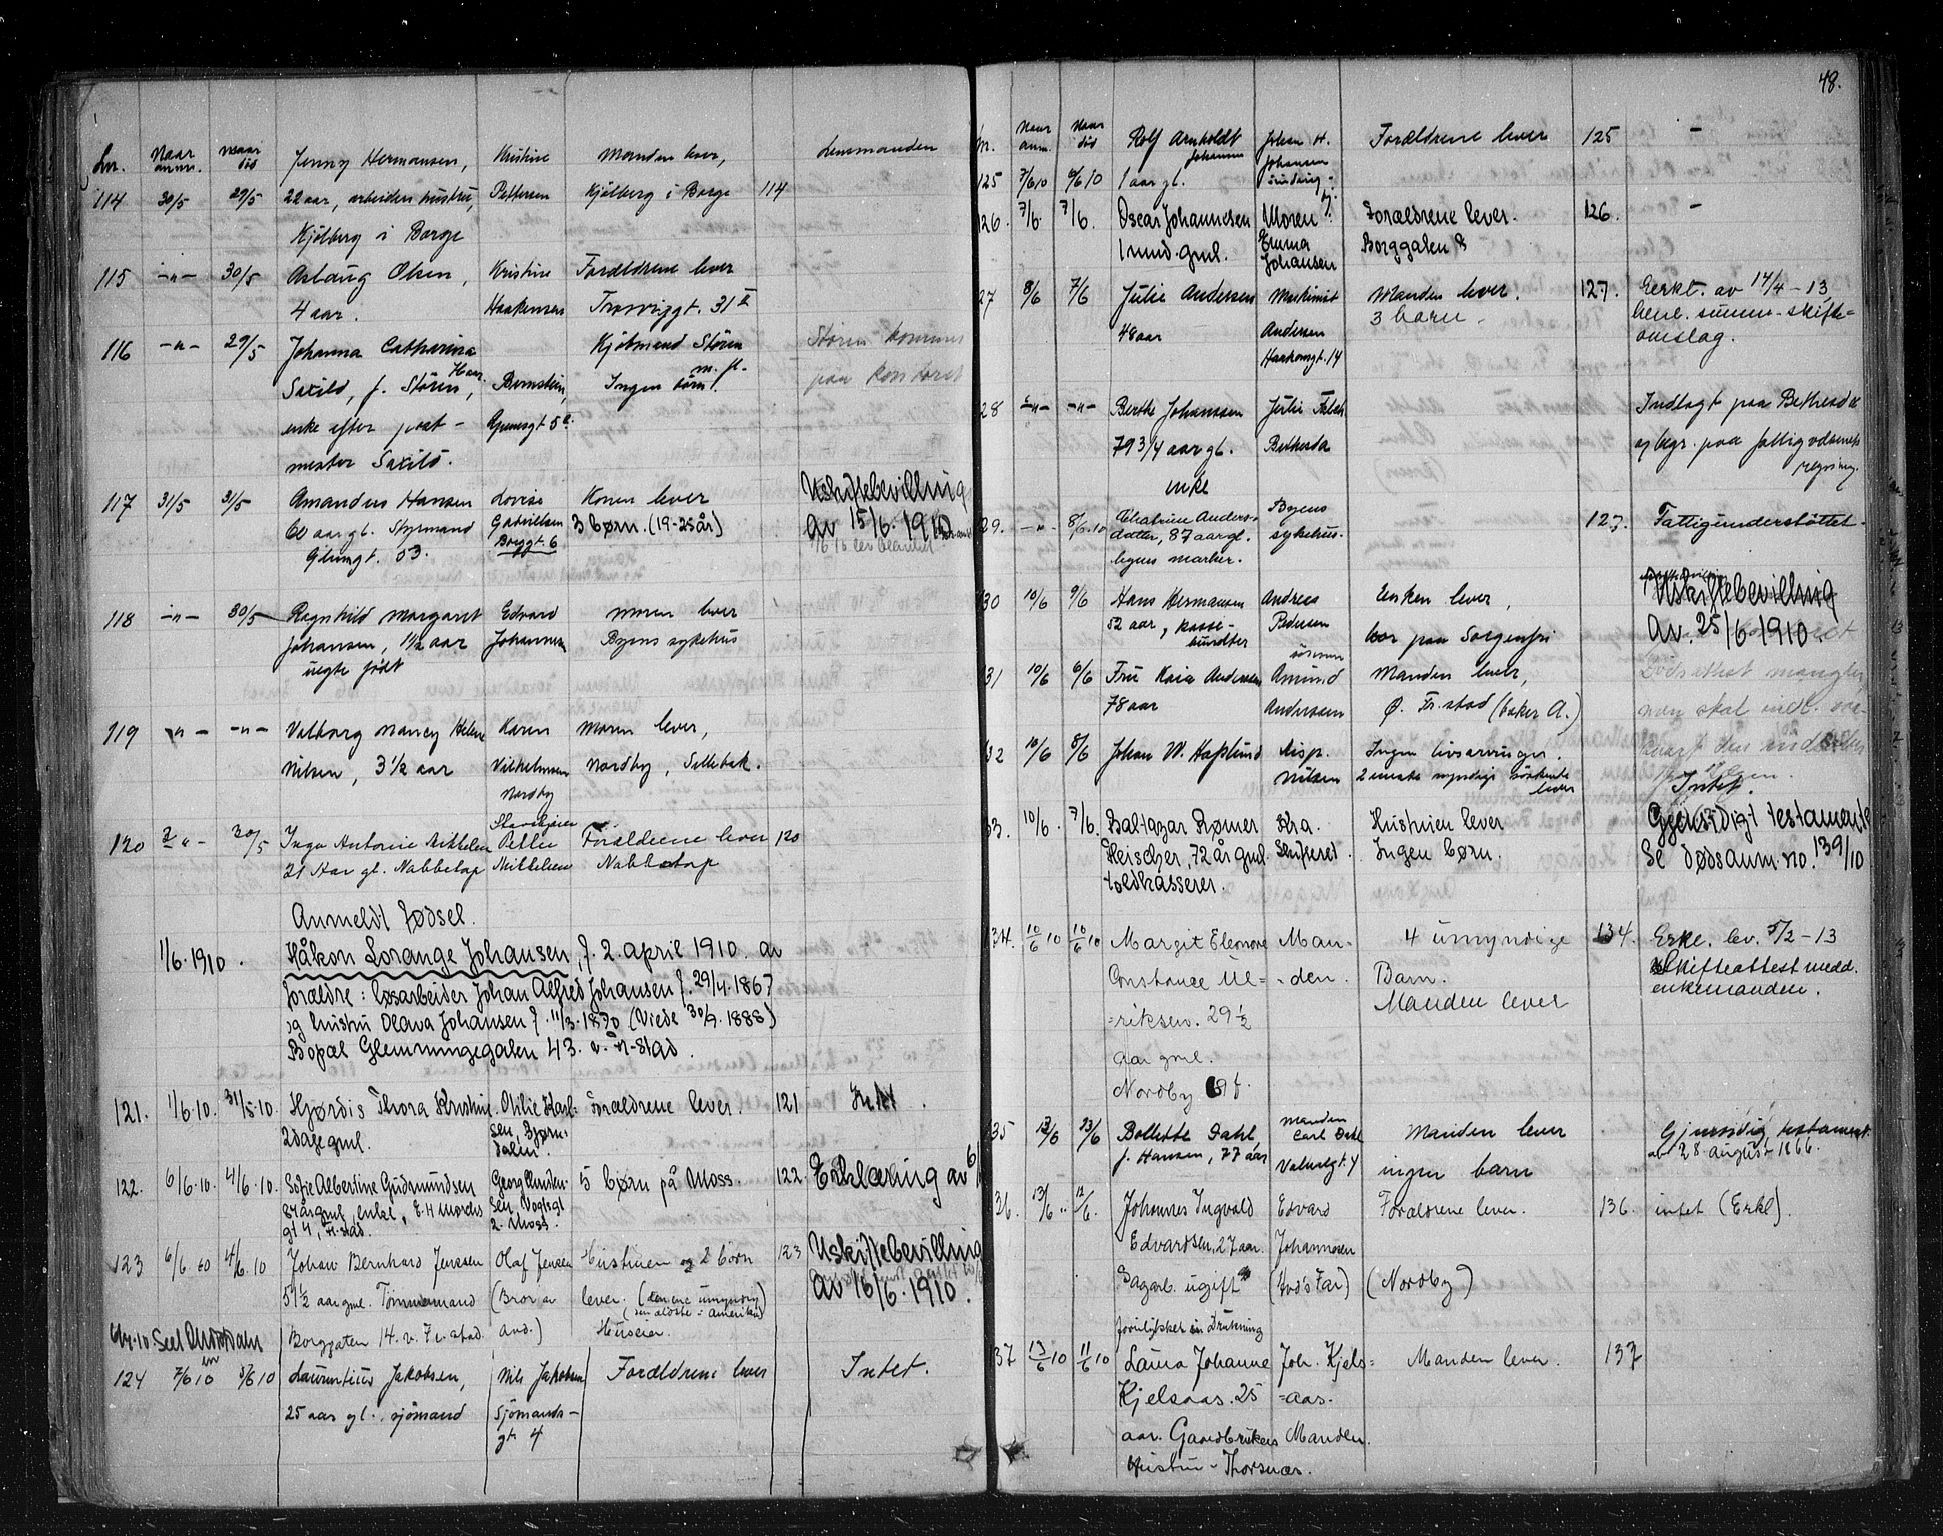 Lnr. Naar anm. Naar død Jenny Hermansen, Kristine Manden lever, Lensmanden
114 30/5 29/5 22 aar, arbeiders hustru, Pettersen Kjølberg i Borge 114
Kjølberg i Borge
115 -"- 30/5 Aslaug Olsen, Kristine Forældrene lever
4 aar. Haakensen Trosviggt. 31
116 -"- 29/5 Johanna Catharina Kjøbmand Støren m. fl. Støren kommer
Saxild, f. Støren, Bernstein, Ingen børn. paa kontoret
enke efter post-
mester Saxild.
117 31/5 31/5 Amandus Hansen Lovise Konen lever Uskiftebevilling
60 aar gl. Styrmand Gabrielsen 3 børn. (19-25 år) av 15/6. 1910
Glemgt. 53. Borggt 6
118 -"- 30/5 Ragnhild Margaret Edvard Moren lever
Johansen, 1 1/2 aar Johannesen Byens sykehus
uegte født
119 -"- -"- Valborg Nancy Helene Karen Moren lever,
Nilsen, 3 1/2 aar Vilhelmsen Nordby, Sellebak.
Nordby
120 -"- 30/5 Inga Antonie Mikkelsen Petter Forældrene lever 120
21 Aar gl. Nabbetorp Mikkelsen Nabbetorp
Anmeldt fødsel.
1/6. 1910. Håkon Lorange Johansen, f. 2. april 1910. av
forældre: løsarbeider Johan Alfred Johansen f. 29/4. 1867
og hustru Olava Johansen f. 11/3. 1870 (Viede 30/9. 1888)
Bopæl Glemmingegaten 43.
121. 1/6.10. 31/5.10. Hjørdis Thora Kristine. Otilie Karl- Forældrene lever. 121 Intet.
2 dage gml. sen, Bjørn-
dalen.
122. 6/6.10. 4/6.10. Sofie Albertine Gudmundsen Georg Gunder- 5 børn på Moss. 122. Erklæring av
87 år gml, enke, sen, Vogtsgt
gt 4, Fr.stad. 2. Moss.
123 6/6 10 4/6.10 Johan Bernhard Jenssen Olaf Jensen Hustruen og 2 børn 123 Uskiftebevilling
59 1/2 aar gml. Tømmermand (Bror av lever. (den ene umyndig) av 16/6. 1910.
(den ældste i Amerika)
Borggaten 14. v. Fr.stad avd.) Huseier.
124 7/6 10 5/6 10 Laurentius Jakobsen, Nils Jakobsen Forældrene lever Intet.
25 aar gl. sjømand Sjømands-
gt. 4
48.
nr. Naar anm. Naar død Rolf Arnholdt Johansen Johan H. Johansen Forældrene lever 125 -
125 7/6 10 6/6 10 1 aar gl.
126. 7/6. 7/6. Oscar Johannesen Moren Forældrene lever. 126. -
1 mnd. gml. Emma Johansen Borggaten 8
27 8/6 7/6 Julie Andersen Maskinist Manden lever. 127. Erkl. av 17/4-13
48 aar Andersen 3 barn. henl. summ. skifte-
Haakonsgt. 14 omslag.
28 -"- -"- Berthe Johanssen Julie Falch Indlagt paa Bethesda
79 3/4 aar gl. Bethesda og begr. paa fattigvæsenets
enke regning.
29. -"- 8/6.10 Cathrine Anders- Byens 127. Fattigunderstøttet.
datter, 87 aar gl. sykehus.
byens marker.
30 10/6 9/6 Hans Hermansen Andreas Enken lever, Uskiftebevilling
52 aar, kasse- Pedersen bor paa Sorgenfri Av. 25/6 1910
bundter
31 10/6 6/6 Fru Kaia Anderssen Amund Manden lever, Dødsattest mangler,
78 aar Anderssen Ø. Fr.stad (baker A.)
32 10/6 8/6 Johan W. Haglund Disp. Ingen livsarvinger.
Nilsen 2 eneste myndige søskende lever Intet.
33. 10/6. 7/6. Baltazar Rømer Kra. Hustruen lever Gjensidigt testamente
Fleischer, 72 år gml. Skifteret. Ingen børn. Se dødsanm. no. 139/10
toldkasserer.
34. 10/6 10 10/6 10 Margit Eleonore Man- 4 umyndige 134. Erkl. lev. 5/2-13
Constance Ul- -den. Barn. Skifteattest medd.
=riksen. 29 1/2 Manden lever enkemanden.
aar gml.
Nordby
35 13/6 13/6 Bollette Dahl, Manden Carl Dahl Manden lever Gjensidig testament
f. Hansen, 77 aar ingen barn av 28 august 1866.
36. 13/6 12/6. Johannes Ingvald Edvard Forældrene lever. 136. intet (Erkl).
Edvardsen, 27 aar. Johannesen
Sagarb. ugift (Avd's Far) (Nordby)
forulykket ved Drukning
37 13/6 10 11/6 10 Laura Johanne Joh. Kjels= Manden lever. 137
Kjelsaas. 25 =aas.
aar. Gaardbrukers Manden.
Hustru - Thorsnæs.